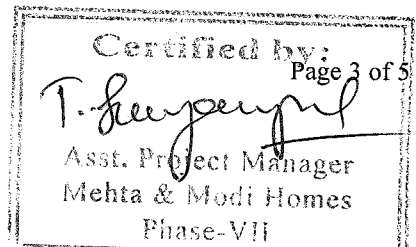 Certified by:
Page 3 of 5
Asst. Project Manager
Mehta & Modi Homes
Phase-VII